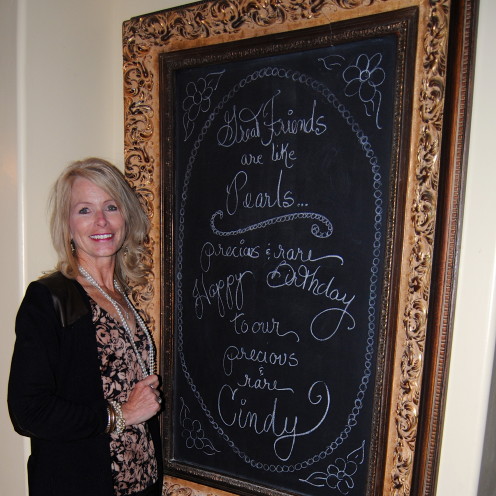 Great Friends
are like
Pearls...
precious & rare
Happy Birthday
to our
precious
&
rare
Cindy